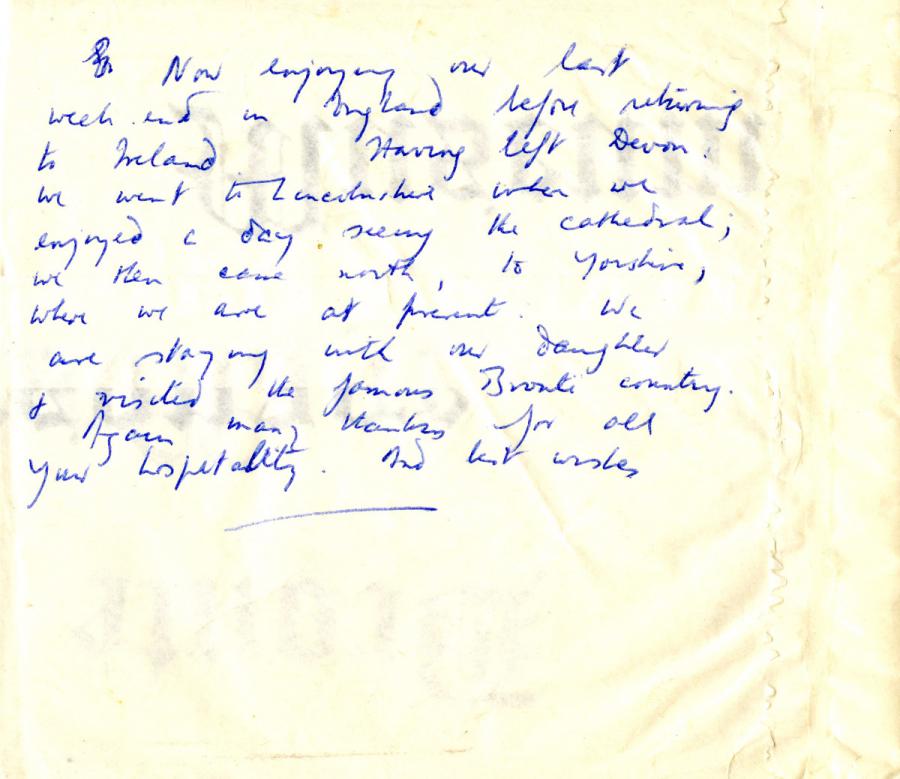 Now enjoying our last
week-end in England before returning
to Ireland Having left Devon.
we went to Lincolnshire where we
enjoyed a day seeing the cathedral;
we then came north, to Yorshire,
where we are at present. We
are staying with our daughter
& visited the famous Bronte country.
Again many thanks for all
your hospitality. And best wishes